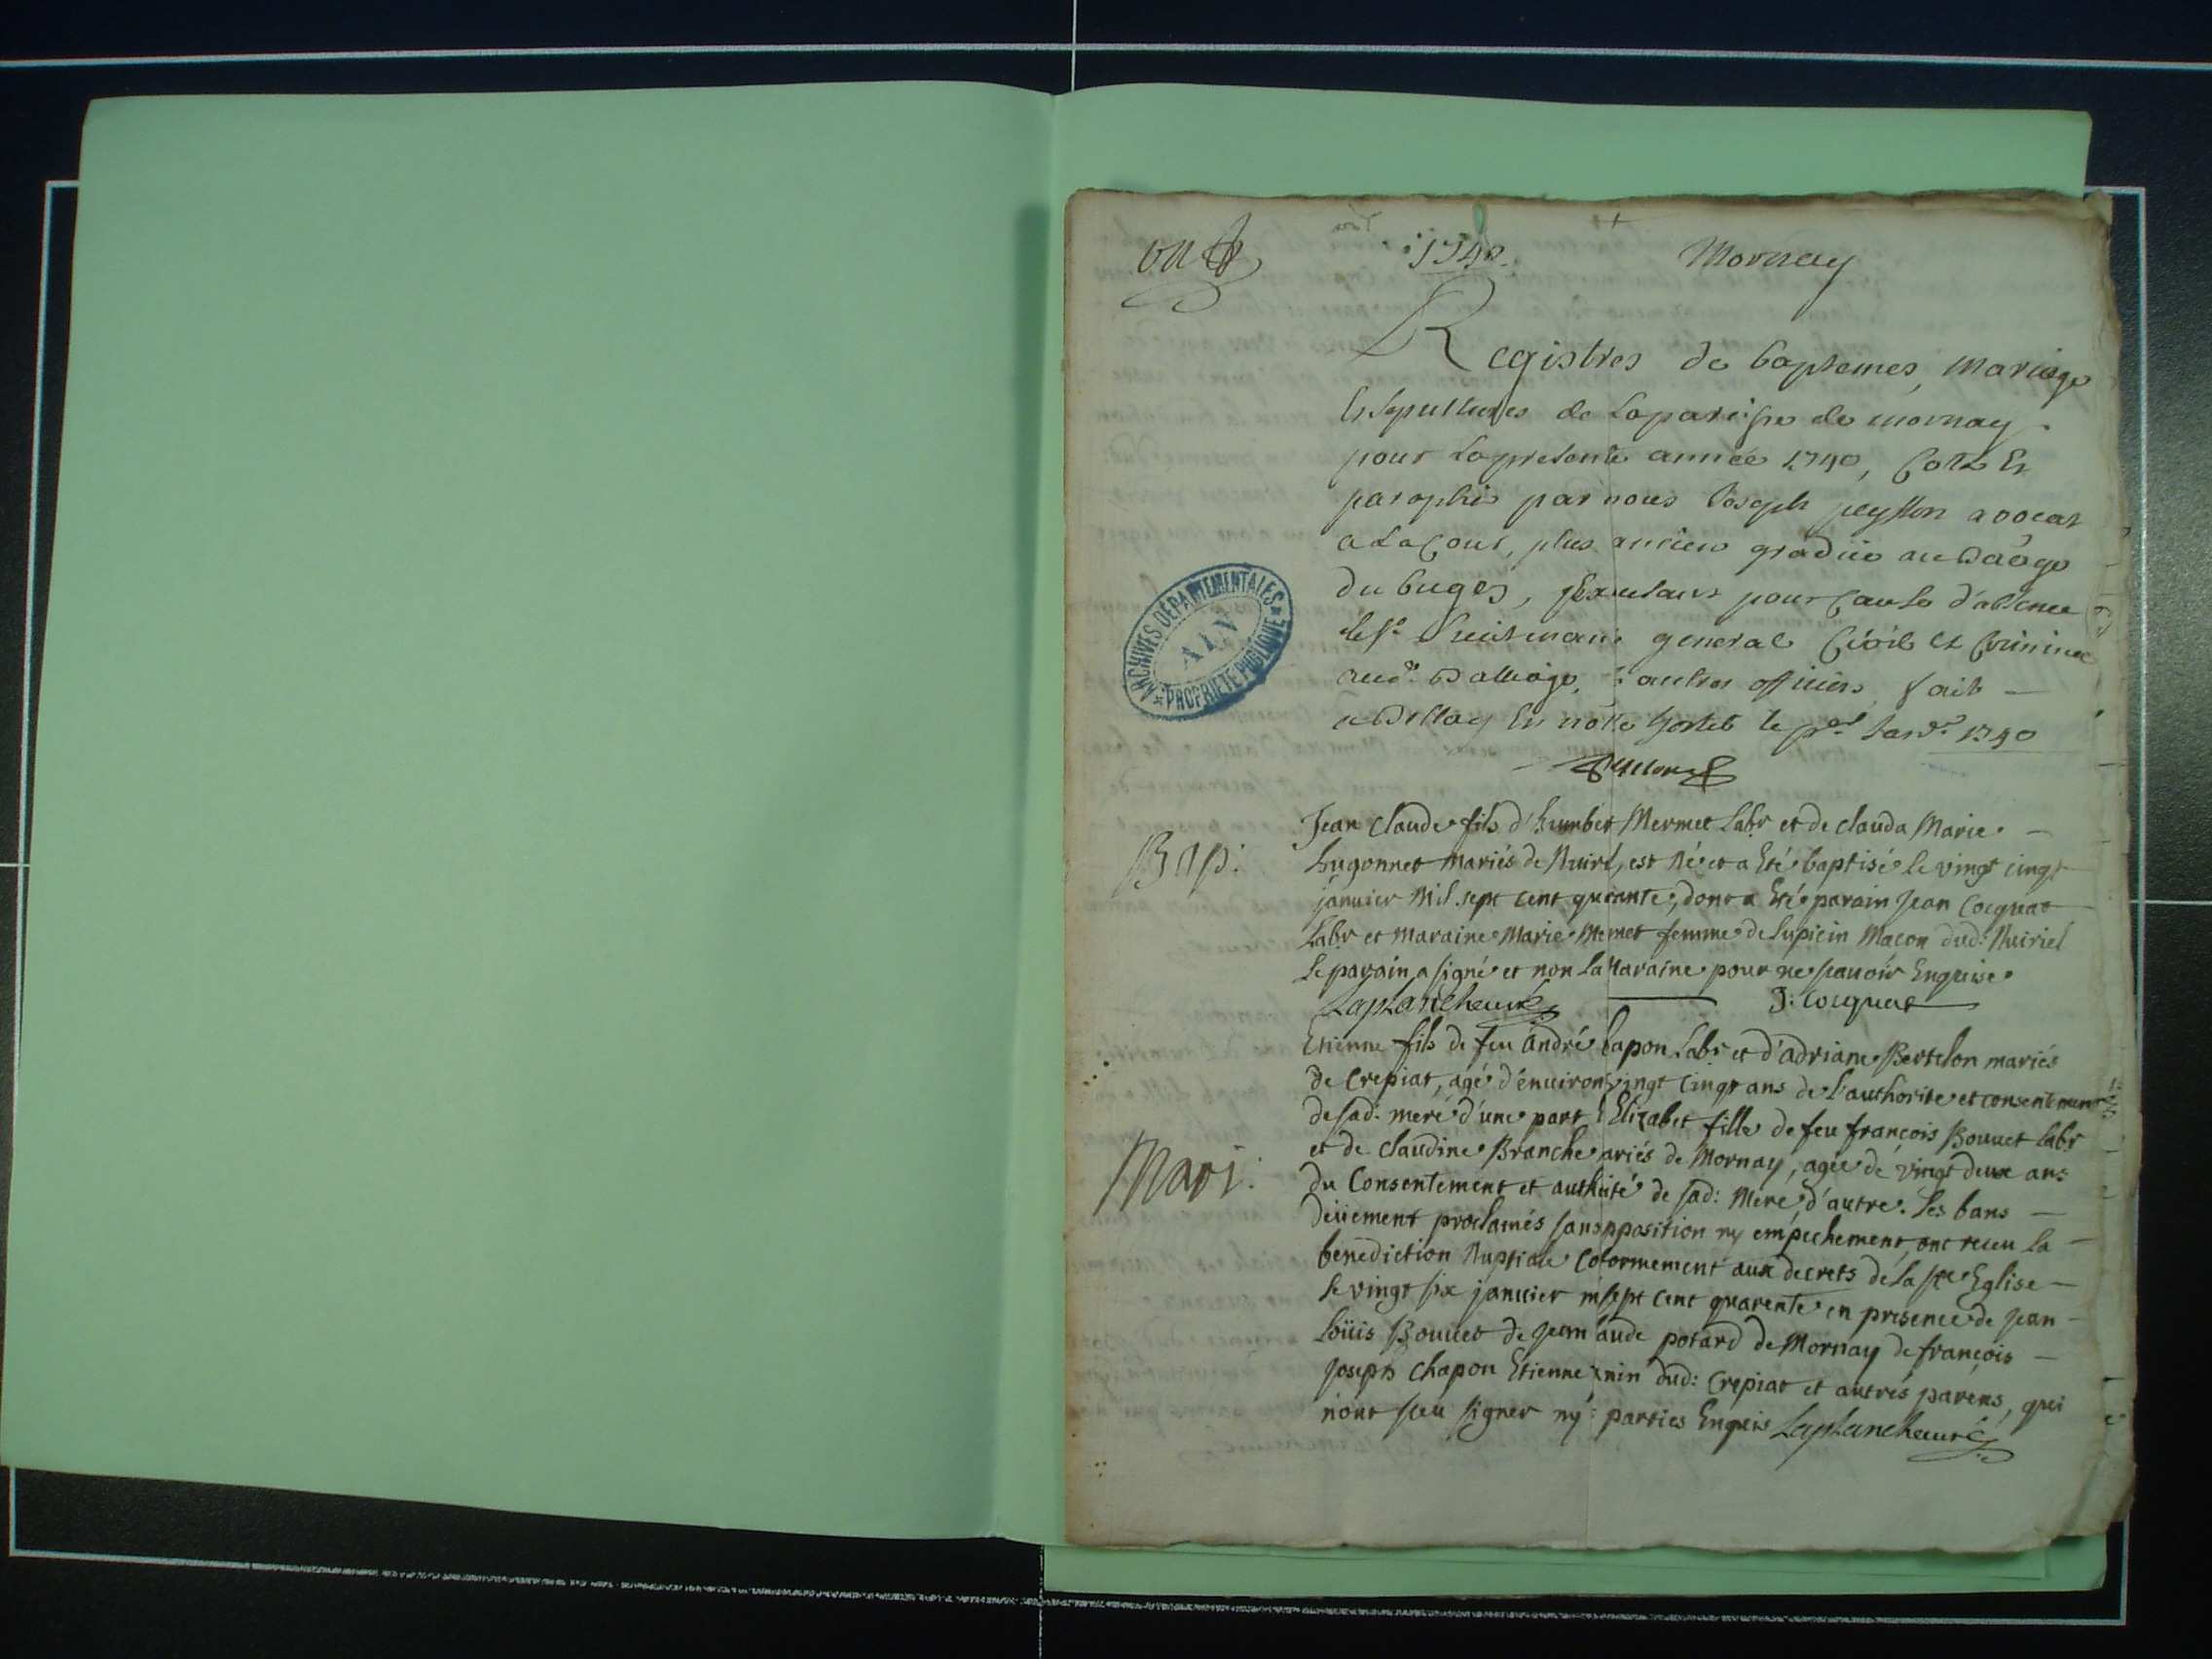 1740. Mornay
Registres de baptemes, Mariage
Et sepultures de Laparoisse de mornay
pour Lapresente année 1740, Cotté Et
paraphé par nous Joseph peysson avocat
a La Cour, plus ancien gradué au Bailliage
du bugey, Exerceant pour Cause d'absence
de Mr. Lieutenant general Civil et Criminel
aud. Bailliage, & autres officiers, fait
a Bellay En nôtre hostel le pr. Janv. 1740
ARCHIVES DÉPARTEMENTALES
AIN
PROPRIÉTÉ PUBLIQUE
Bap:
Jean Claude fils d'humbert Mermet Labr et de clauda Marie
hugonnet mariés de Nuirl, est Né et a Eté baptisé le vingt cinqt
janvier Mil sept cent quarante, dont a Eté parain Jean Cocquat
Labr et maraine Marie Memet femme de Lupicin Macon dud: Nuiriel
Le parain a signé et non La Maraine pour ne scavoir Enquise.
Laplanche curé J: Cocquat
Mari:
Etienne fils de feu andré hapon Labr et d'adriane Bertelon mariés
de Crepiat, agé d'environ vingt cinqt ans de l'authorite et consentement
de sad: mere d'une part Elizabet fille de feu françois Bouuet Labr
et de claudine Branche ariés de Mornay, agée de vingt deux ans
du Consentement et authité de sad: Mere, d'autre. Les bans
deüement proclamés sans pposition ny empechement, ont receu la
benediction Nuptiale coformement aux decrets de la ste Eglise
Le vingt six janvier misept cent quarente en presence de jean
Loüis Bouuet de jean aude potard de Mornay de françois
joseph chapon Etienne nin dud: Crepiat et autres parens, qui
n'ont sceu signer ny parties Enquis Laplanche curé